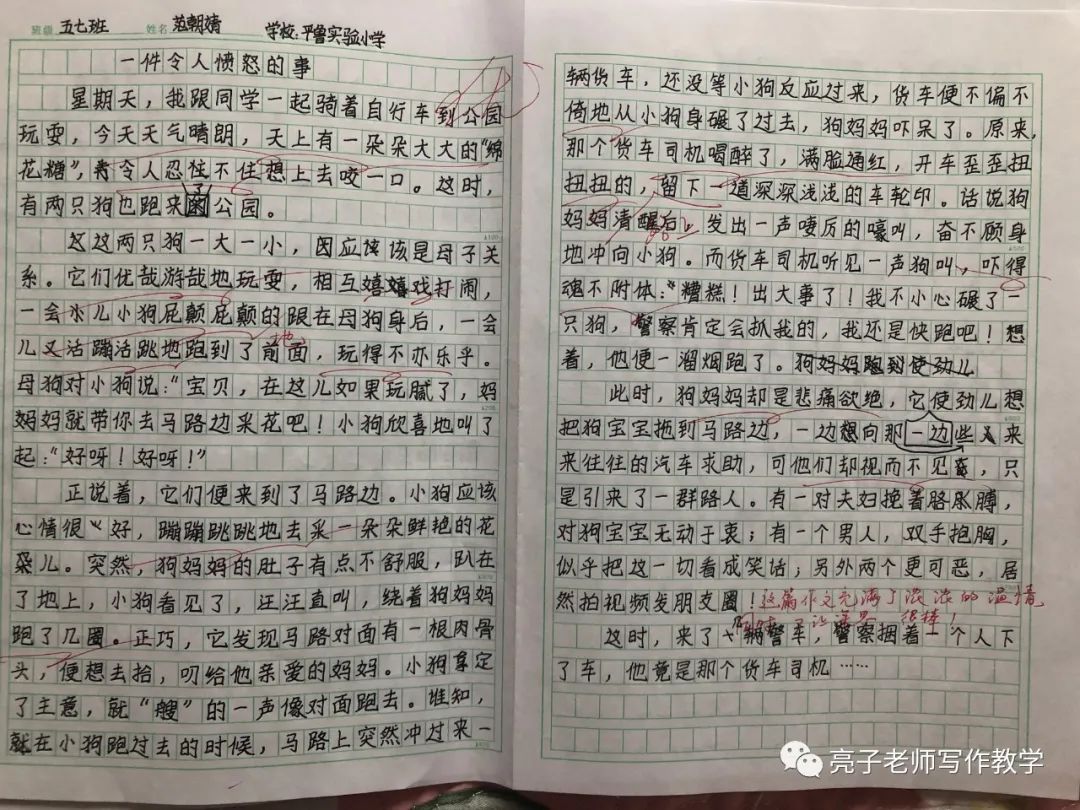 班级 五七班 姓名 范朝婧 学校：平鲁实验小学
一件令人愤怒的事
星期天，我跟同学一起骑着自行车到公园
玩耍，今天天气晴朗，天上有一朵朵大大的“绵
花糖”，令人忍不住想上去咬一口。这时，
有两只狗也跑来了公园。
这两只狗一大一小，因应该是母子关
系。它们优哉游哉地玩耍，相互嬉嬉戏打闹，
一会儿小狗屁颠屁颠的跟在母狗身后，一会
儿又活蹦活跳地跑到了前面，玩得不亦乐乎。
母狗对小狗说：“宝贝，在这儿如果玩腻了，妈
妈妈就带你去马路边采花吧！小狗欣喜地叫了
起：“好呀！好呀！”
正说着，它们便来到了马路边。小狗应该
心情很好，蹦蹦跳跳地去采一朵朵鲜艳的花
朵儿。突然，狗妈妈的肚子有点不舒服，趴在
了地上，小狗看见了，汪汪直叫，绕着狗妈妈
跑了几圈。正巧，它发现马路对面有一根肉骨
头，便想去拾，叼给他亲爱的妈妈。小狗拿定
了主意，就“艘”的一声像对面跑去。谁知，
就在小狗跑过去的时候，马路上突然冲过来一
辆货车，还没等小狗反应过来，货车便不偏不
倚地从小狗身碾了过去，狗妈妈吓呆了。原来，
那个货车司机喝醉了，满脸通红，开车歪歪扭
扭扭的，留下一道深深浅浅的车轮印。话说狗
妈妈清醒后，发出一声凄厉的嚎叫，奋不顾身
地冲向小狗。而货车司机听见一声狗叫，吓得
魂不附体：“糟糕！出大事了！我不小心碾了一
只狗，警察肯定会抓我的，我还是快跑吧！想
着，他便一溜烟跑了。狗妈妈跑到使劲儿
此时，狗妈妈却是悲痛欲绝，它使劲儿想
把狗宝宝拖到马路边，一边想向那一边些来
来往往的汽车求助，可他们却视而不见，只
是引来了一群路人。有一对夫妇挽着胳膊，
对狗宝宝无动于衷；有一个男人，双手抱胸，
似乎把这一切看成笑话；另外两个更可恶，居
然拍视频发朋友圈！这篇作文充满了浓浓的温情，
很棒！
这时，来了一辆警车，警察捆着一个人下
了车，他竟是那个货车司机……
亮子老师写作教学